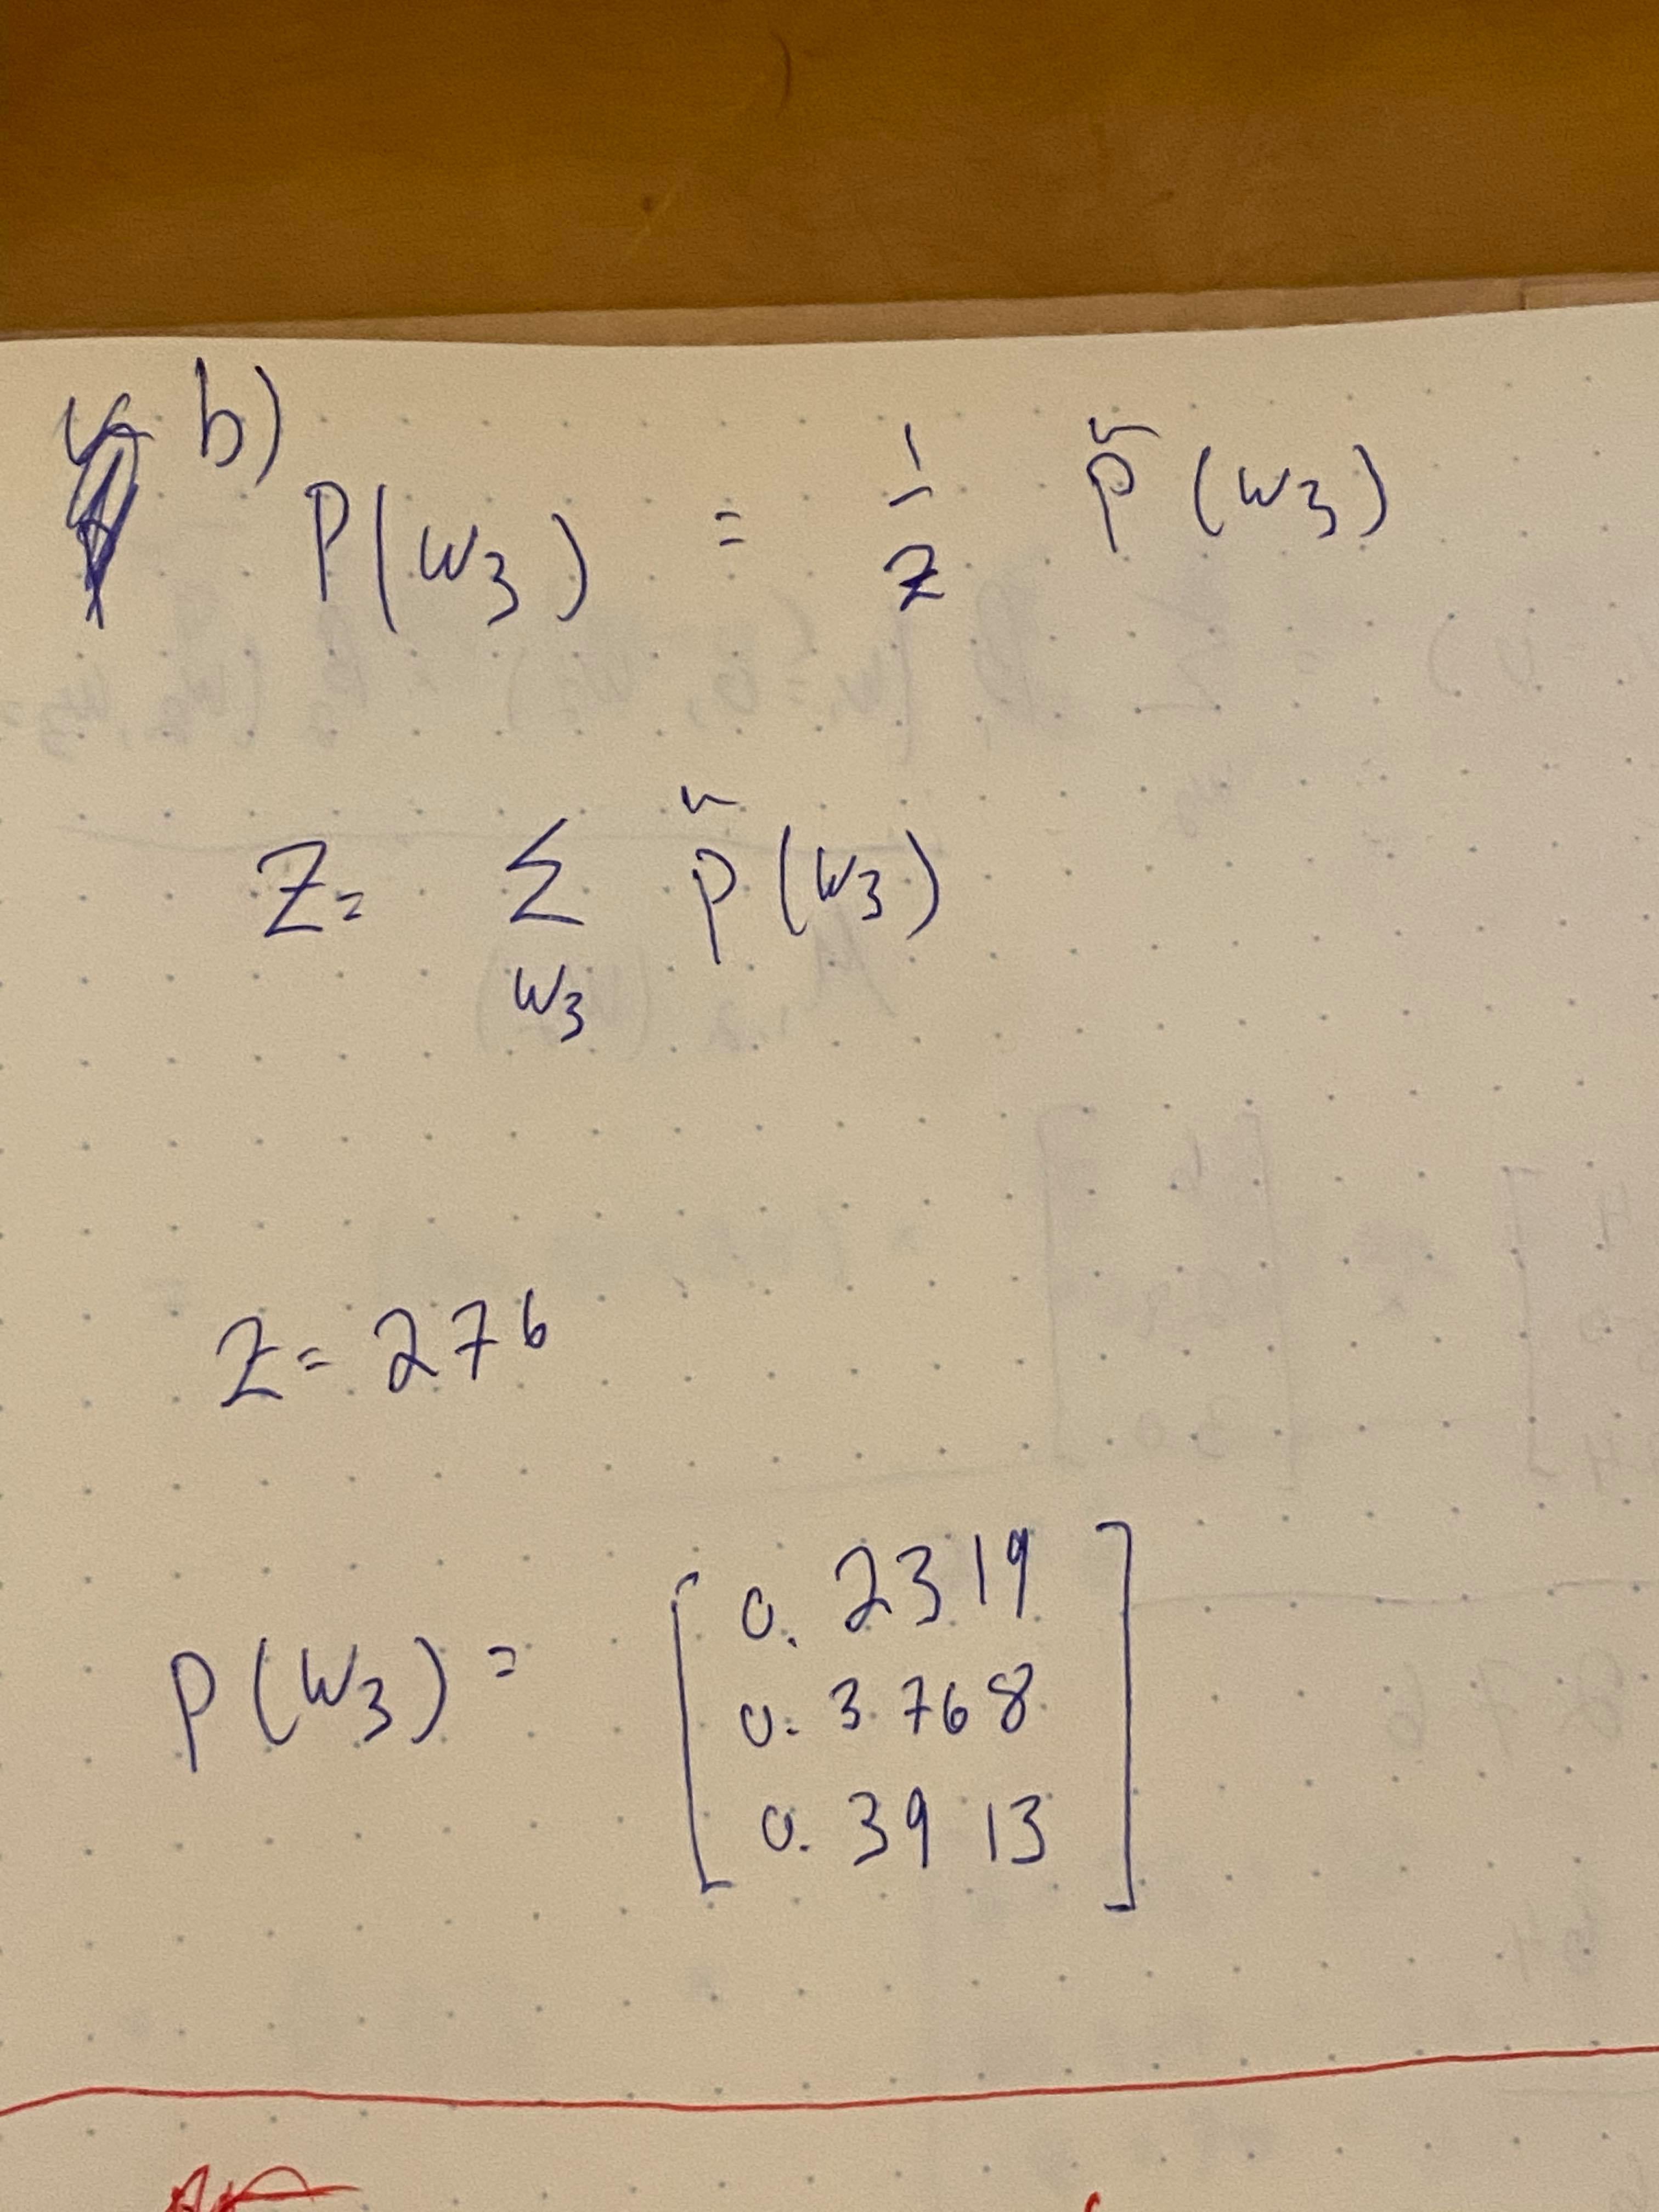 b)
P(w₃) = 1/Z p̃(w₃)
Z = Σ p̃(w₃)
w₃
Z = 276
p(w₃) = [0.2319
0.3768
0.3913]